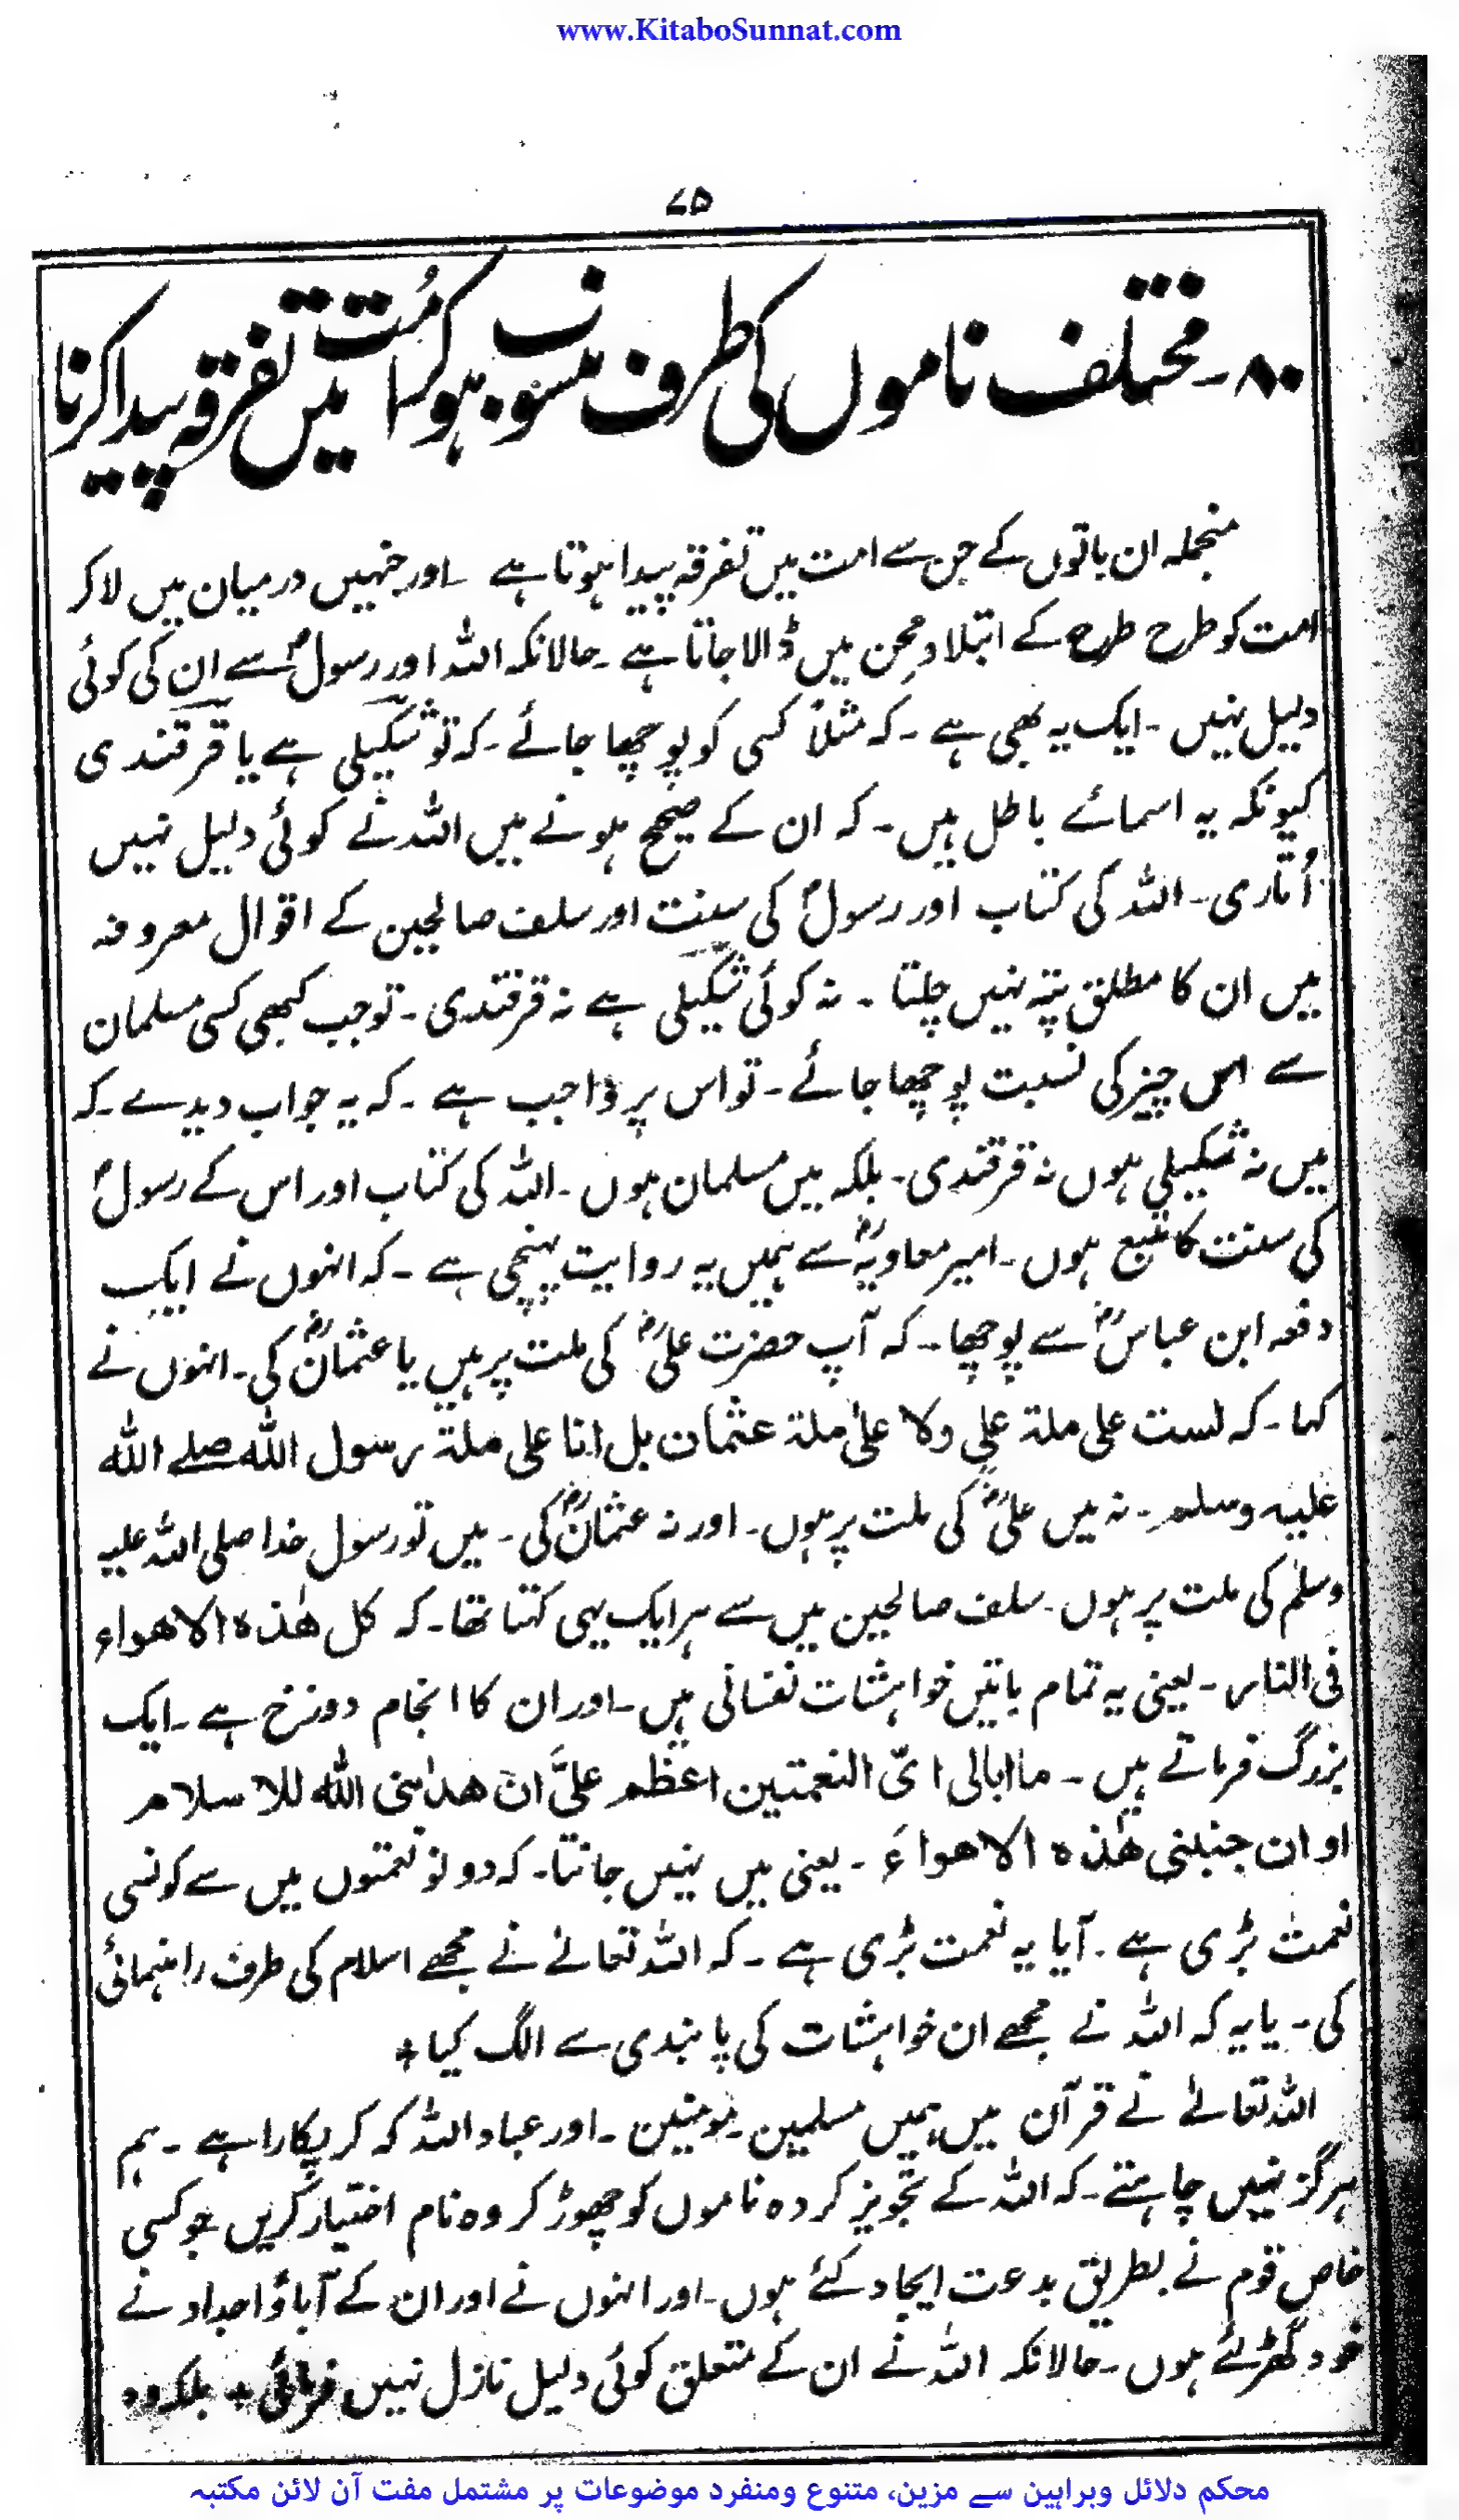 www.KitaboSunnat.com
۷۵
۸۰۔ مختلف ناموں کی طرف منسوب ہو کر اُمت میں تفرقہ پیدا کرنا
منجملہ ان باتوں کے جن سے امت میں تفرقہ پیدا ہوتا ہے ۔ اور جنہیں درمیان میں لا کر
امت کو طرح طرح کے ابتلا و محن میں ڈالا جاتا ہے ۔ حالانکہ اللہ اور رسولؐ سے ان کی کوئی
دلیل نہیں ۔ ایک یہ بھی ہے ۔ کہ مثلاً کسی کو پوچھا جائے ۔ کہ تو شکیلی ہے یا قرقندی
کیونکہ یہ اسمائے باطل ہیں ۔ کہ ان کے صحیح ہونے میں اللہ نے کوئی دلیل نہیں
اُتاری ۔ اللہ کی کتاب اور رسولؐ کی سنت اور سلف صالحین کے اقوال معروفہ
میں ان کا مطلق پتہ نہیں چلتا ۔ نہ کوئی شکیلی ہے نہ قرقندی ۔ تو جب کبھی کسی مسلمان
سے اس چیز کی نسبت پوچھا جائے ۔ تو اس پر واجب ہے ۔ کہ یہ جواب دیدے ۔ کہ
میں نہ شکیلی ہوں نہ قرقندی ۔ بلکہ میں مسلمان ہوں ۔ اللہ کی کتاب اور اس کے رسولؐ
کی سنت کا متبع ہوں ۔ امیر معاویہؓ سے ہمیں یہ روایت پہنچی ہے ۔ کہ انہوں نے ایک
دفعہ ابن عباسؓ سے پوچھا ۔ کہ آپ حضرت علیؓ کی ملت پر ہیں یا عثمانؓ کی ۔ انہوں نے
کہا ۔ کہ لست علی ملة علی ولا علیٰ ملة عثمان بل انا علی ملة رسول اللہ صلے اللہ
علیہ وسلم ۔ نہ میں علیؓ کی ملت پر ہوں ۔ اور نہ عثمانؓ کی ۔ میں تو رسول خدا صلی اللہ علیہ
وسلم کی ملت پر ہوں ۔ سلف صالحین میں سے ہر ایک یہی کہتا تھا ۔ کہ کل ھٰذہ الاھواء
فی النار ۔ یعنی یہ تمام باتیں خواہشات نفسانی ہیں ۔ اور ان کا انجام دوزخ ہے ۔ ایک
بزرگ فرماتے ہیں ۔ ما ابالی ایّ النعمتین اعظم علیَّ ان ھدٰنی اللہ للاسلام
او ان جنبنی ھٰذہ الاھواءَ ۔ یعنی میں نہیں جانتا ۔ کہ دونو نعمتوں میں سے کونسی
نعمت بڑی ہے ۔ آیا یہ نعمت بڑی ہے ۔ کہ اللہ تعالےٰ نے مجھے اسلام کی طرف راہنمائی
کی ۔ یا یہ کہ اللہ نے مجھے ان خواہشات کی پابندی سے الگ کیا +
اللہ تعالےٰ نے قرآن میں ہمیں مسلمین ۔ مومنین ۔ اور عباد اللہ کہ کر پکارا ہے ۔ ہم
ہرگز نہیں چاہتے ۔ کہ اللہ کے تجویز کردہ ناموں کو چھوڑ کر وہ نام اختیار کریں جو کسی
خاص قوم نے بطریق بدعت ایجاد کئے ہوں ۔ اور انہوں نے اور ان کے آباؤ اجداد نے
خود گھڑ لئے ہوں ۔ حالانکہ اللہ نے ان کے متعلق کوئی دلیل نازل نہیں فرمائی + بلکہ وہ
محکم دلائل وبراہین سے مزین، متنوع ومنفرد موضوعات پر مشتمل مفت آن لائن مکتبہ